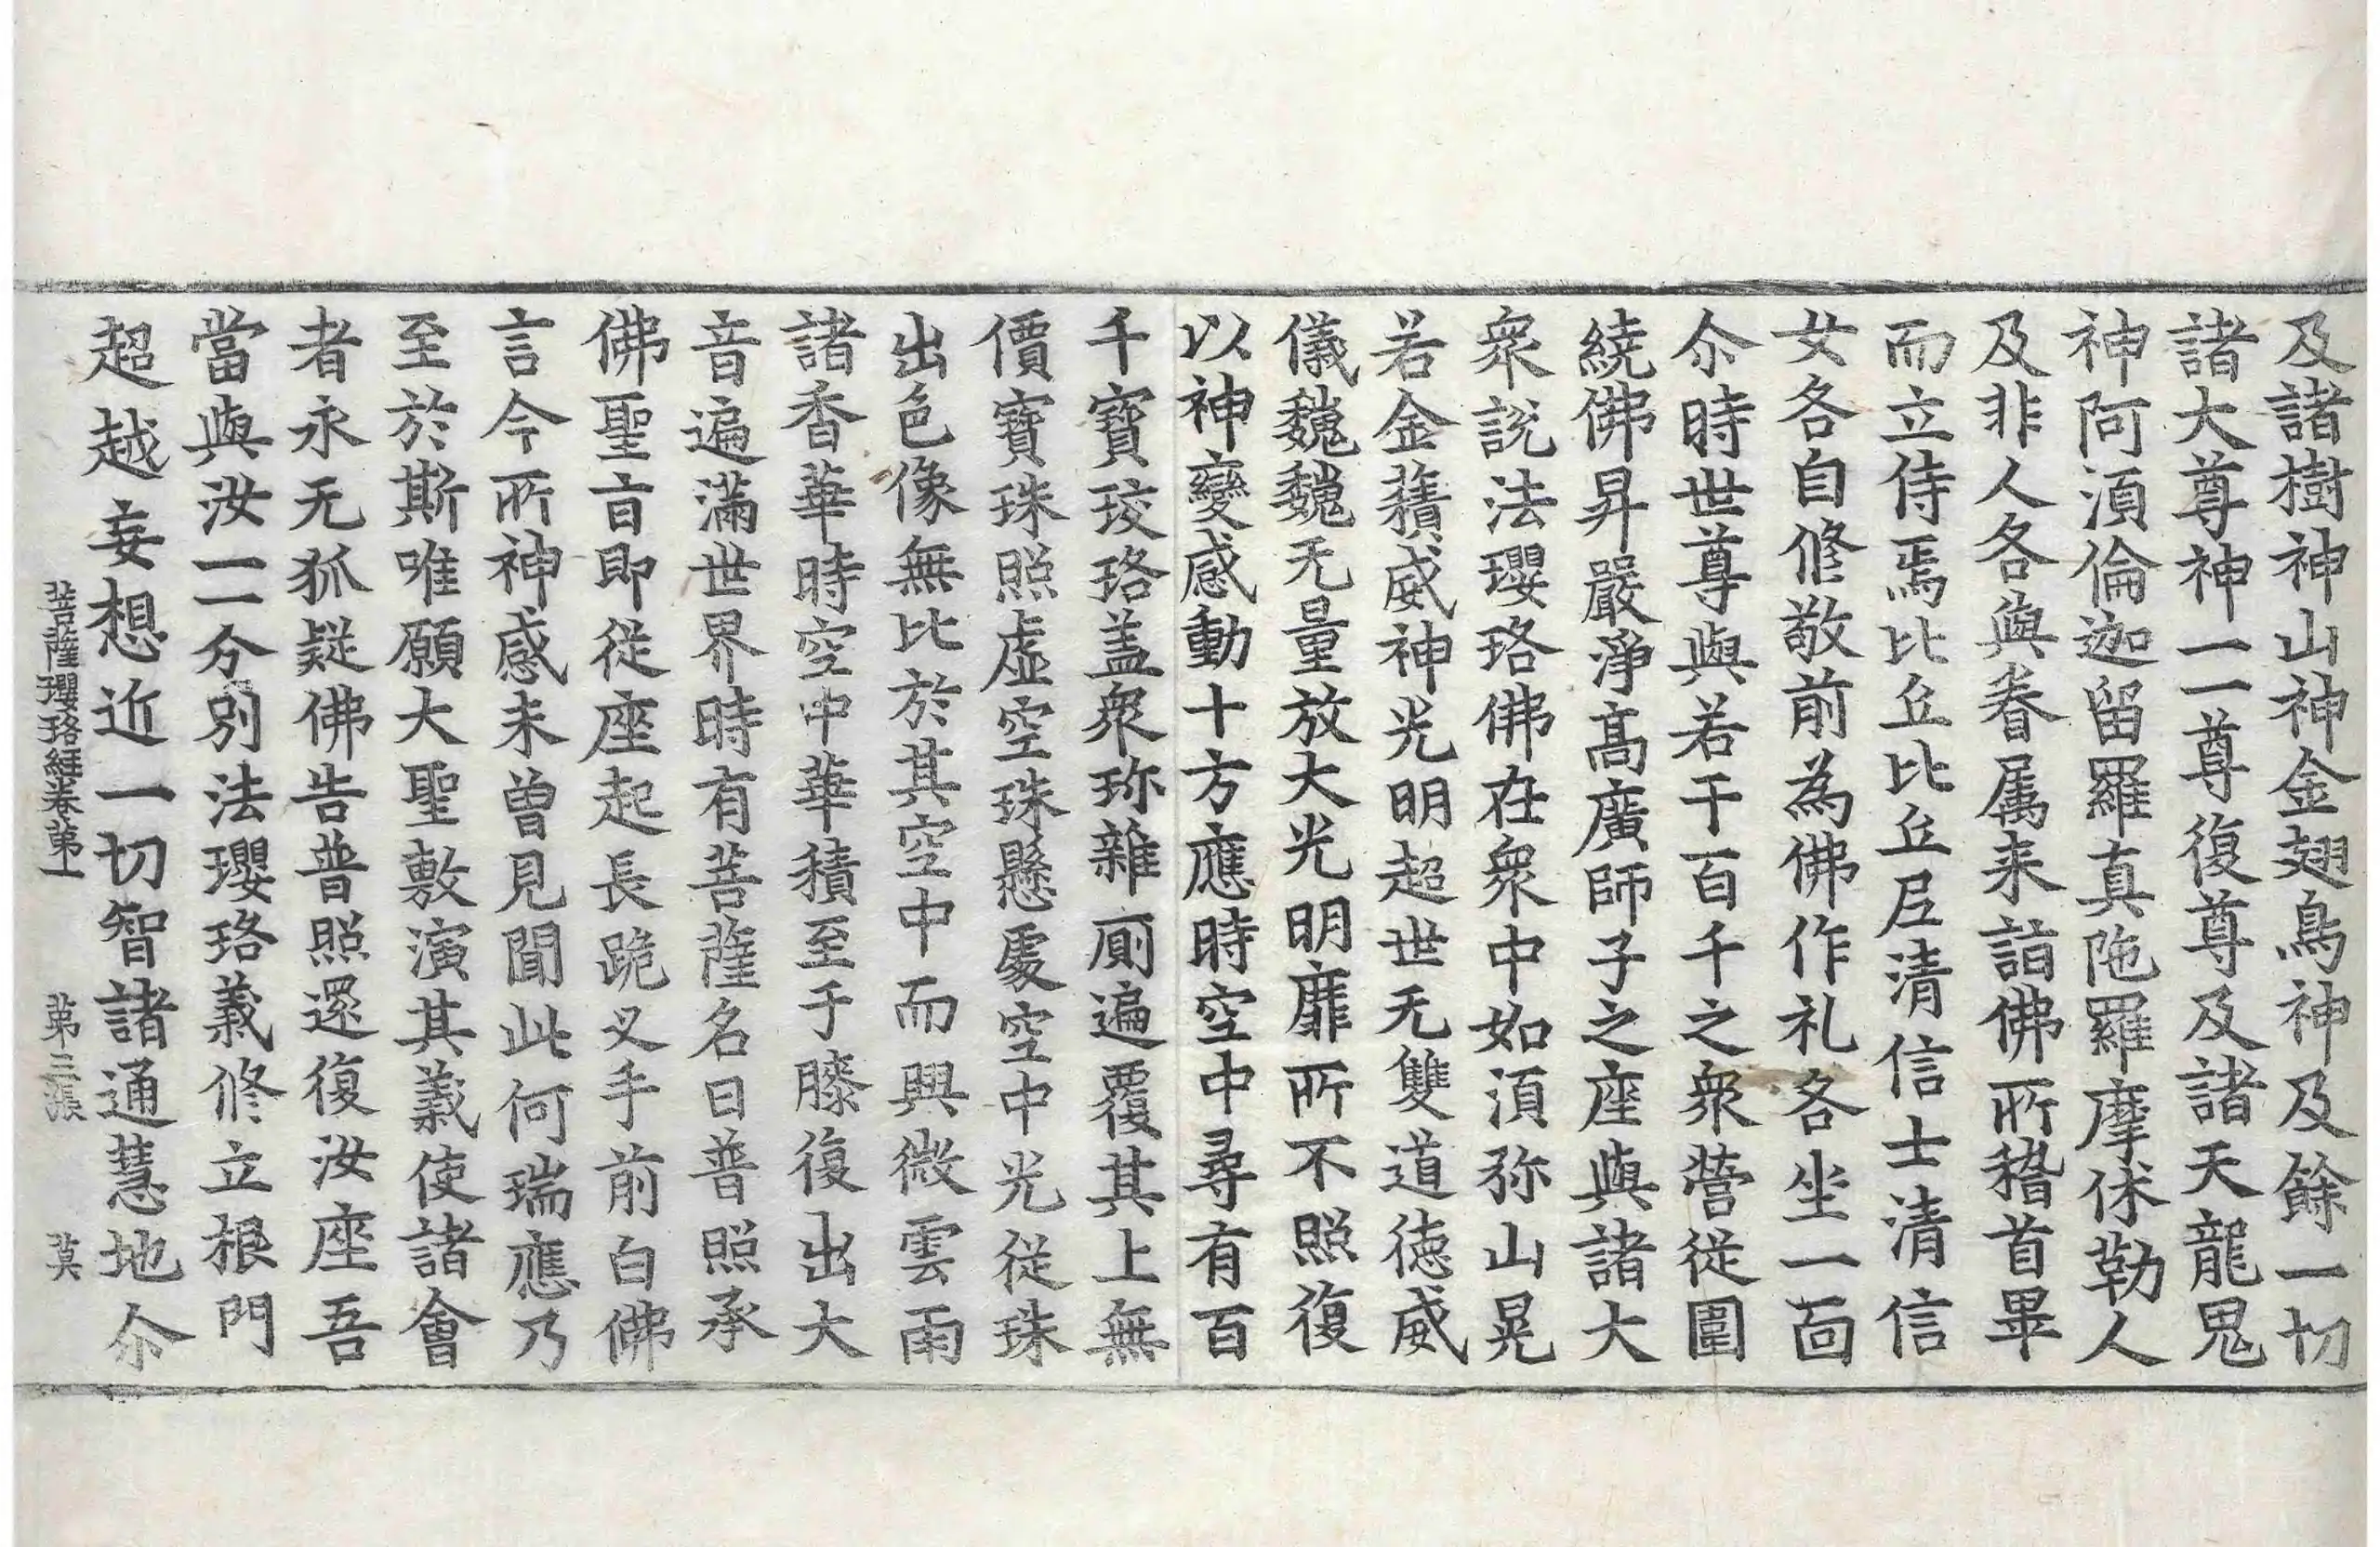 及諸樹神山神金翅鳥神及餘一切
諸大尊神一一尊復尊及諸天龍鬼
神阿湏倫迦留羅真陁羅摩休勒人
及非人各與眷属来詣佛所稽首畢
而立侍焉比丘比丘尼清信士清信
女各自修敬前為佛作礼各坐一面
尒時世尊與若干百千之衆營従圍
繞佛昇嚴淨髙廣師子之座與諸大
衆說法瓔珞佛在衆中如湏弥山晃
若金𧂐威神光明超世无雙道徳威
儀魏魏无量放大光明靡所不照復
以神變感動十方應時空中尋有百
千寶珓珞盖衆珎雜廁遍覆其上無
價寶珠照虚空珠懸處空中光従珠
出色像無比於其空中而興微雲雨
諸香華時空中華積至于膝復出大
音遍滿世界時有菩薩名曰普照承
佛聖㫖即従座起長跪叉手前白佛
言今所神感未曽見聞此何瑞應乃
至於斯唯願大聖敷演其義使諸會
者永无狐疑佛告普照還復汝座吾
當與汝一一分別法瓔珞義修立根門
超越妄想近一切智諸通慧地尒
菩薩瓔珞経卷第一 第三張 莫